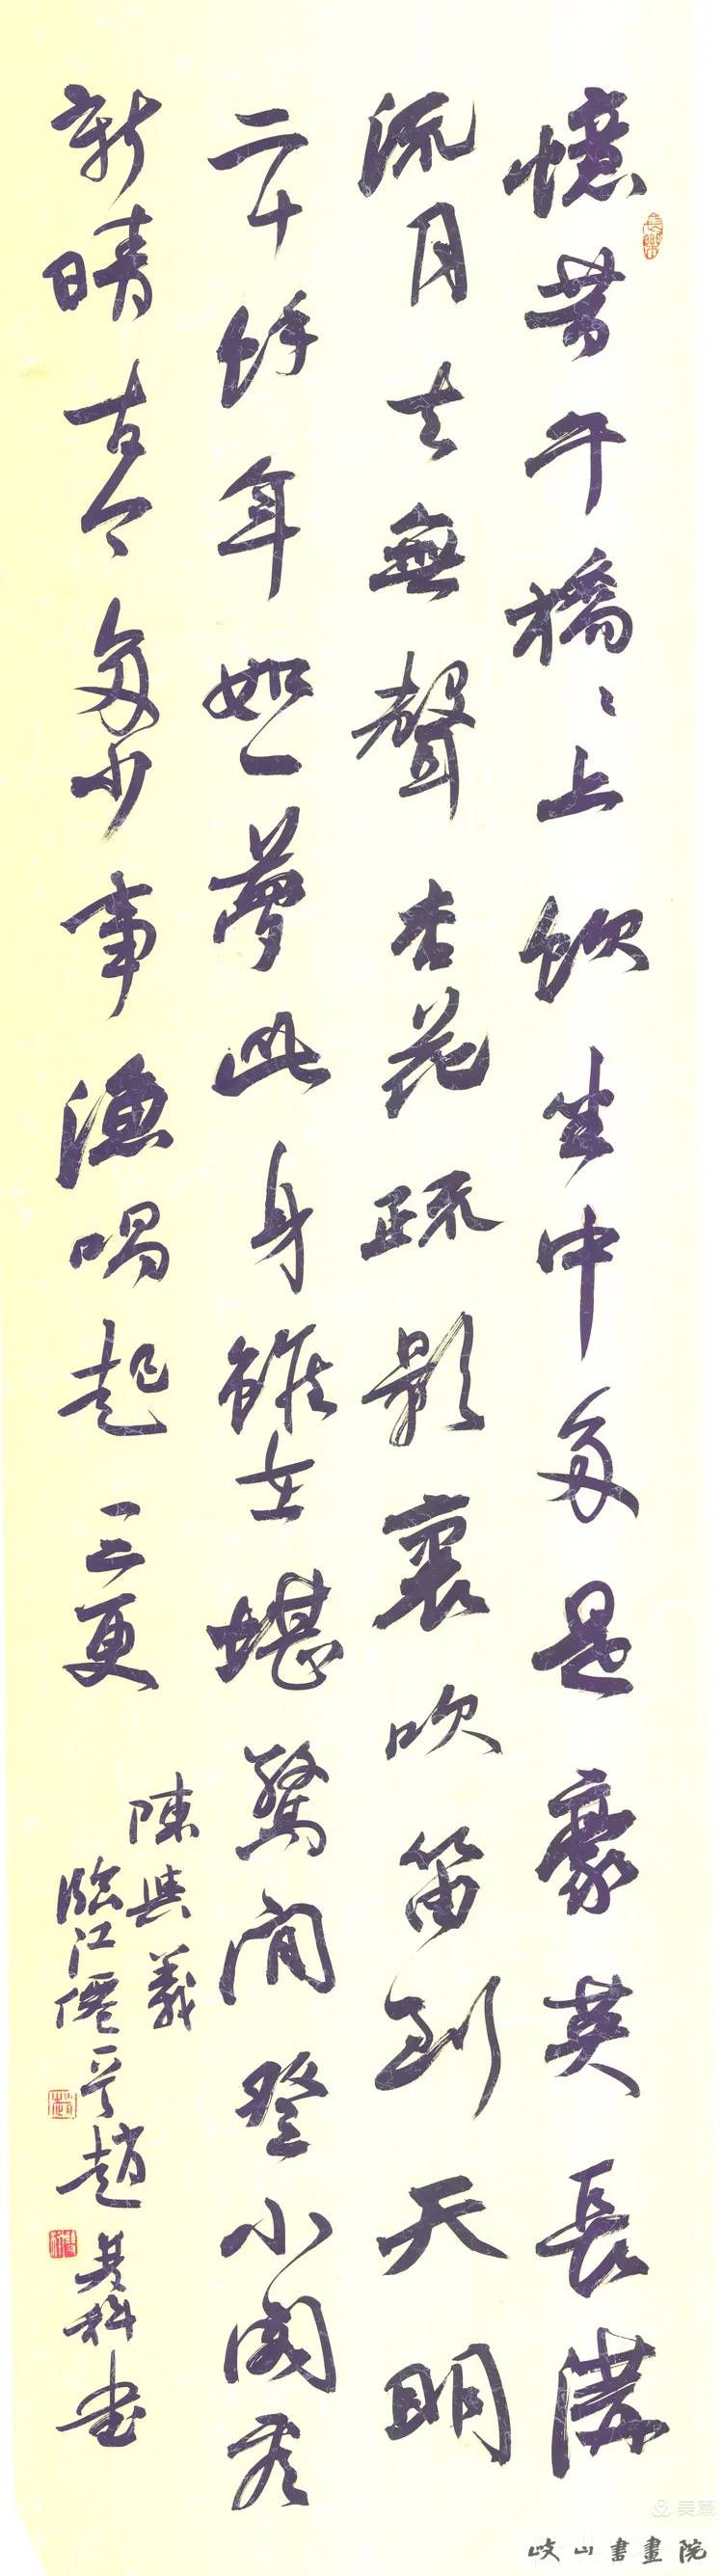 憶昔午橋〻上飲坐中多是豪英長溝
流月去無聲杏花疏影裏吹笛到天明
二十餘年如一夢此身雖在堪驚閒登小閣看
新晴古今多少事漁唱起三更
陳與義
臨江僊 趙 科書
長樂
美篇
岐山書畫院